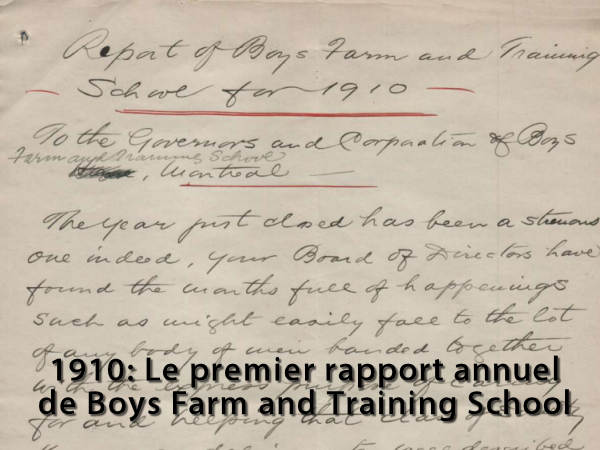 Report of Boys Farm and Training
School for 1910
To the Governors and Corporation of Boys
Farm and Training School
, Montreal
The Year just closed has been a strenuous
one indeed, your Board of Directors have
found the months full of happenings
such as might easily fall to the lot
of any body of men banded together
with the express purpose of caring
for and helping that class of
1910: Le premier rapport annuel
de Boys Farm and Training School